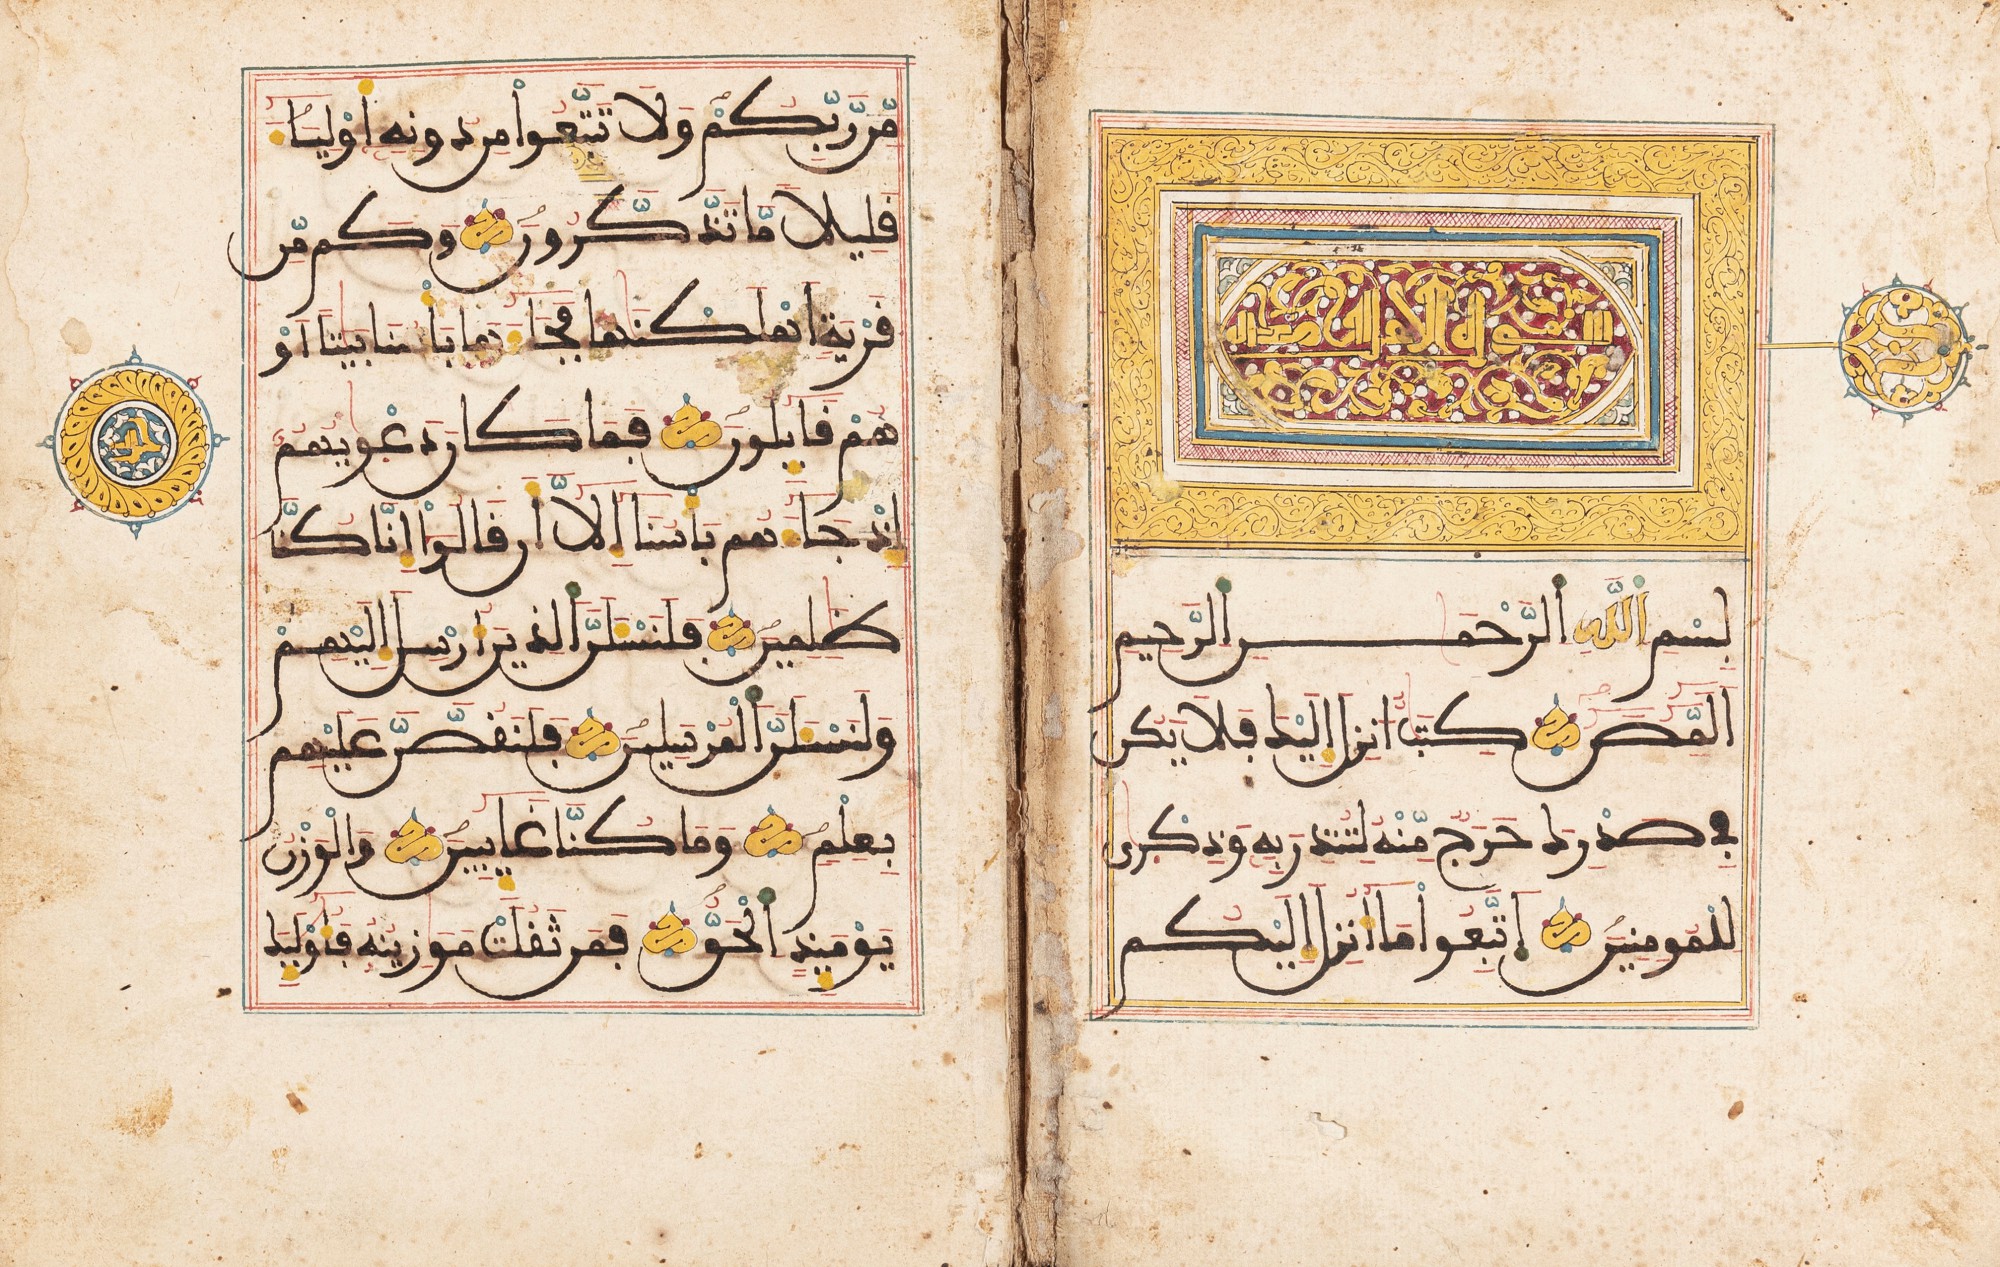 بِسْمِ اللَّهِ الرَّحْمَٰنِ الرَّحِيمِ
الٓمٓصٓ كِتَٰبٌ أُنزِلَ إِلَيْكَ فَلَا يَكُن
فِي صَدْرِكَ حَرَجٌ مِّنْهُ لِتُنذِرَ بِهِ وَذِكْرَىٰ
لِلْمُومِنِينَ اِتَّبِعُوا مَا أُنزِلَ إِلَيْكُم
مِّن رَّبِّكُمْ وَلَا تَتَّبِعُوا مِن دُونِهِ أَوْلِيَاءَ
قَلِيلًا مَّا تَذَّكَّرُونَ وَكَم مِّن
قَرْيَةٍ أَهْلَكْنَٰهَا فَجَاءَهَا بَأْسُنَا بَيَٰتًا أَوْ
هُمْ قَايِلُونَ فَمَا كَانَ دَعْوَيٰهُمْ
إِذْ جَاءَهُم بَأْسُنَا إِلَّا أَن قَالُوا إِنَّا كُنَّا
ظَٰلِمِينَ فَلَنَسْـَٔلَنَّ الَّذِينَ أُرْسِلَ إِلَيْهِمْ
وَلَنَسْـَٔلَنَّ الْمُرْسَلِينَ فَلَنَقُصَّنَّ عَلَيْهِم
بِعِلْمٍ وَمَا كُنَّا غَايِبِينَ وَالْوَزْنُ
يَوْمَئِذٍ الْحَقُّ فَمَن ثَقُلَتْ مَوَٰزِينُهُ فَأُوْلَٰئِكَ